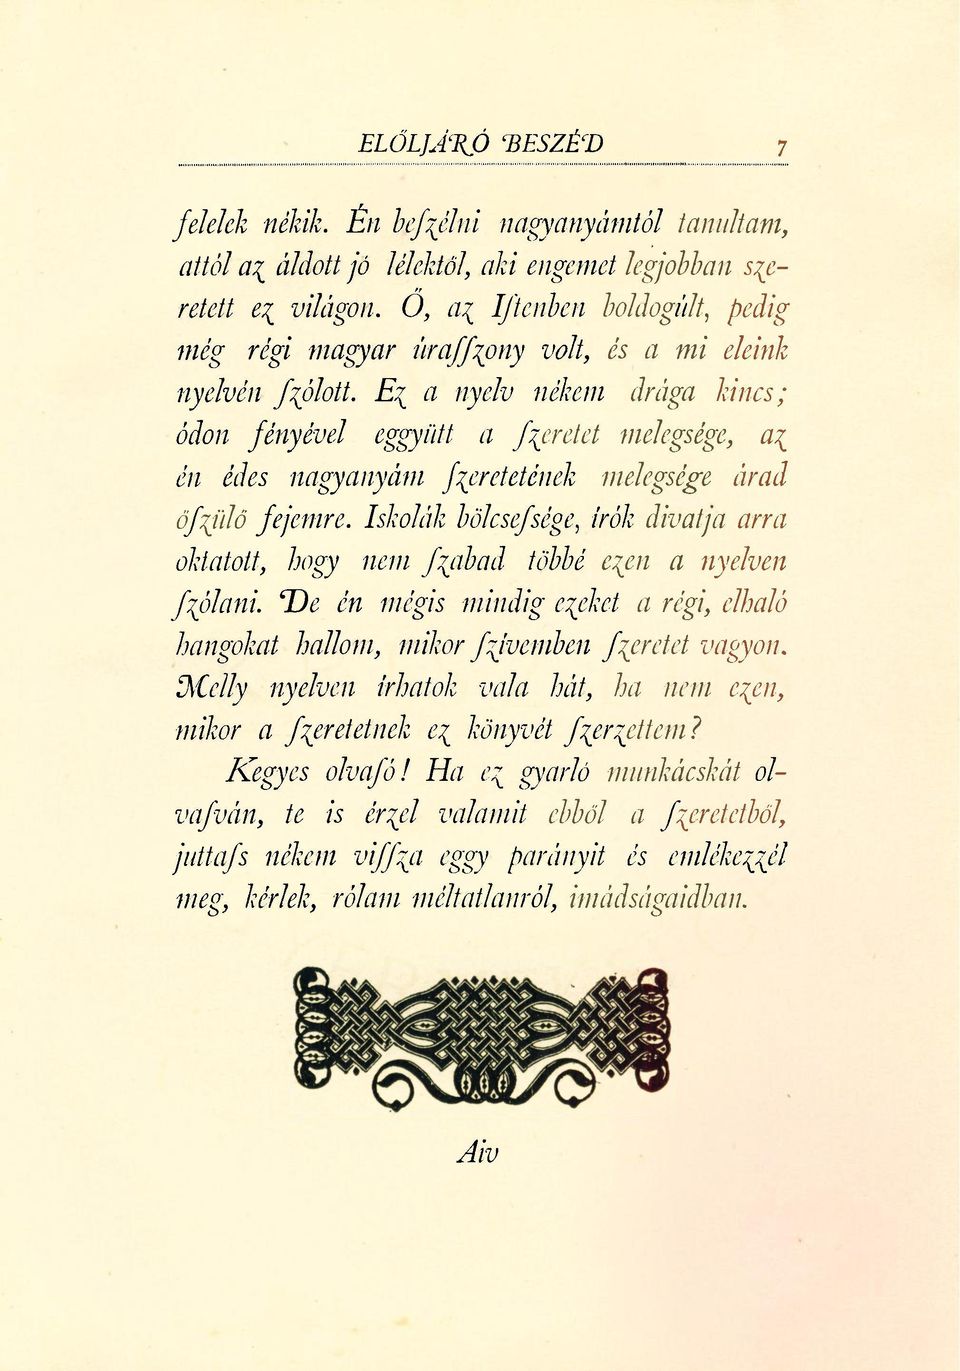 ELŐLJÁRÓ BESZÉD 7
felelek nékik. Én beſzélni nagyanyámtól tanultam,
attól az áldott jó lélektől, aki engemet legjobban sze-
retett ez világon. Ő, az Iſtenben boldogúlt, pedig
még régi magyar úraſſzony volt, és a mi eleink
nyelvén ſzólott. Ez a nyelv nékem drága kincs;
ódon fényével eggyütt a ſzeretet melegsége, az
én édes nagyanyám ſzeretetének melegsége árad
őſzülő fejemre. Iskolák bölcseſsége, írók divatja arra
oktatott, hogy nem ſzabad többé ezen a nyelven
ſzólani. De én mégis mindig ezeket a régi, elhaló
hangokat hallom, mikor ſzívemben ſzeretet vagyon.
Melly nyelven írhatok vala hát, ha nem ezen,
mikor a ſzeretetnek ez könyvét ſzerzettem?
Kegyes olvaſó! Ha ez gyarló munkácskát ol-
vaſván, te is érzel valamit ebből a ſzeretetből,
juttaſs nékem viſſza eggy parányit és emlékezzél
meg, kérlek, rólam méltatlanról, imádságaidban.
Aiv